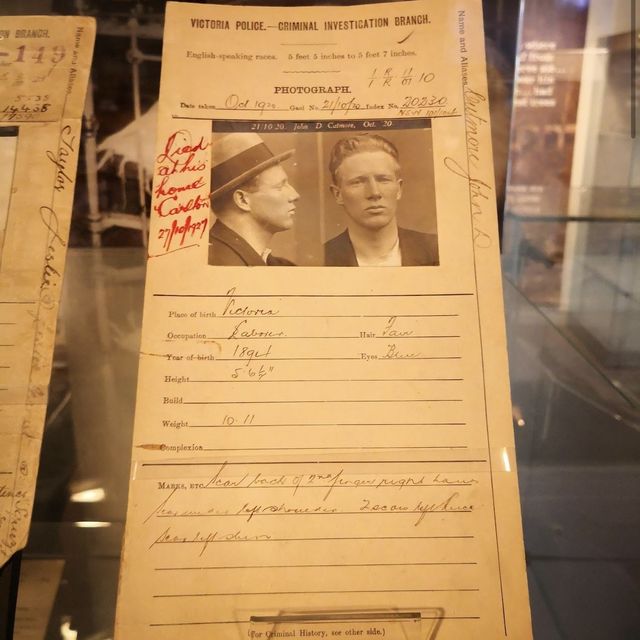 VICTORIA POLICE.—CRIMINAL INVESTIGATION BRANCH.
English-speaking races. 5 feet 5 inches to 5 feet 7 inches.
10
PHOTOGRAPH.
Date taken Oct 1920 Gaol No. 21/10/20 Index No. 20230
21 10 20. John D Cutmore, Oct. '20
Died
at his
home
Carlton
27/10/1927
Name and Aliases Cutmore John D
Place of birth Victoria
Occupation Labourer Hair Fair
Year of birth 1894 Eyes Blue
Height 5' 6½"
Build
Weight 10.11
Complexion
MARKS, ETC. Scar back of 2nd finger right hand
scar under left shoulder 2 scars left knee
scar left shin
(For Criminal History, see other side.)
ON BRANCH.
149
Name and Aliases
Taylor Leslie